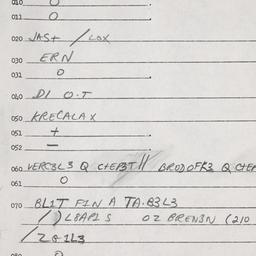 010 O
011 O
020 JAST / LOX
030 ERN
031 O
040 DI O.T
050 KRECALAX
051 +
052 -
060 VERCBL3 Q CHEP3T // BRODOFF3 Q CHEP
061 O
070 BL1T FIN A TA.B3L3
/ ) L8AP1 S OZ BREN3N (210
/ Z & 1L3
080 O